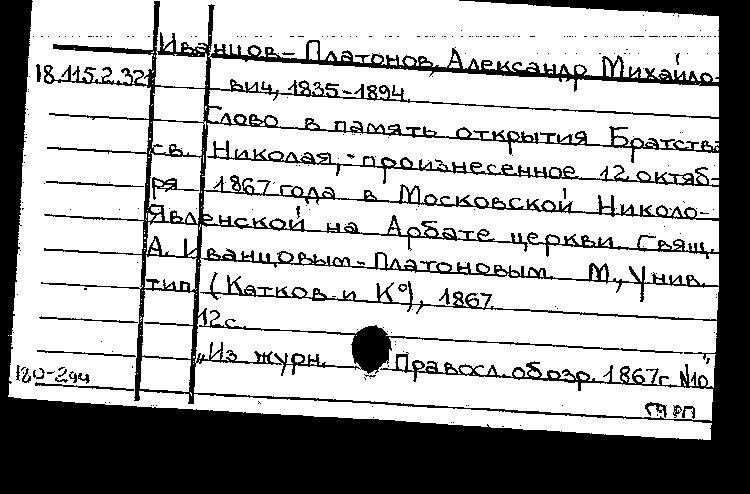 Иванцов-Платонов, Александр Михайло-
18.115.2.321
вич, 1835-1894.
Слово в память открытия Братства
св. Николая, произнесенное 12 октяб-
ря 1867 года в Московской Николо-
Явленской на Арбате церкви. Свящ.
А. Иванцовым-Платоновым. М., Унив.
тип. (Катков и К°), 1867.
12 с.
„Из журн. Правосл. обозр. 1867 г. №10"
180-294